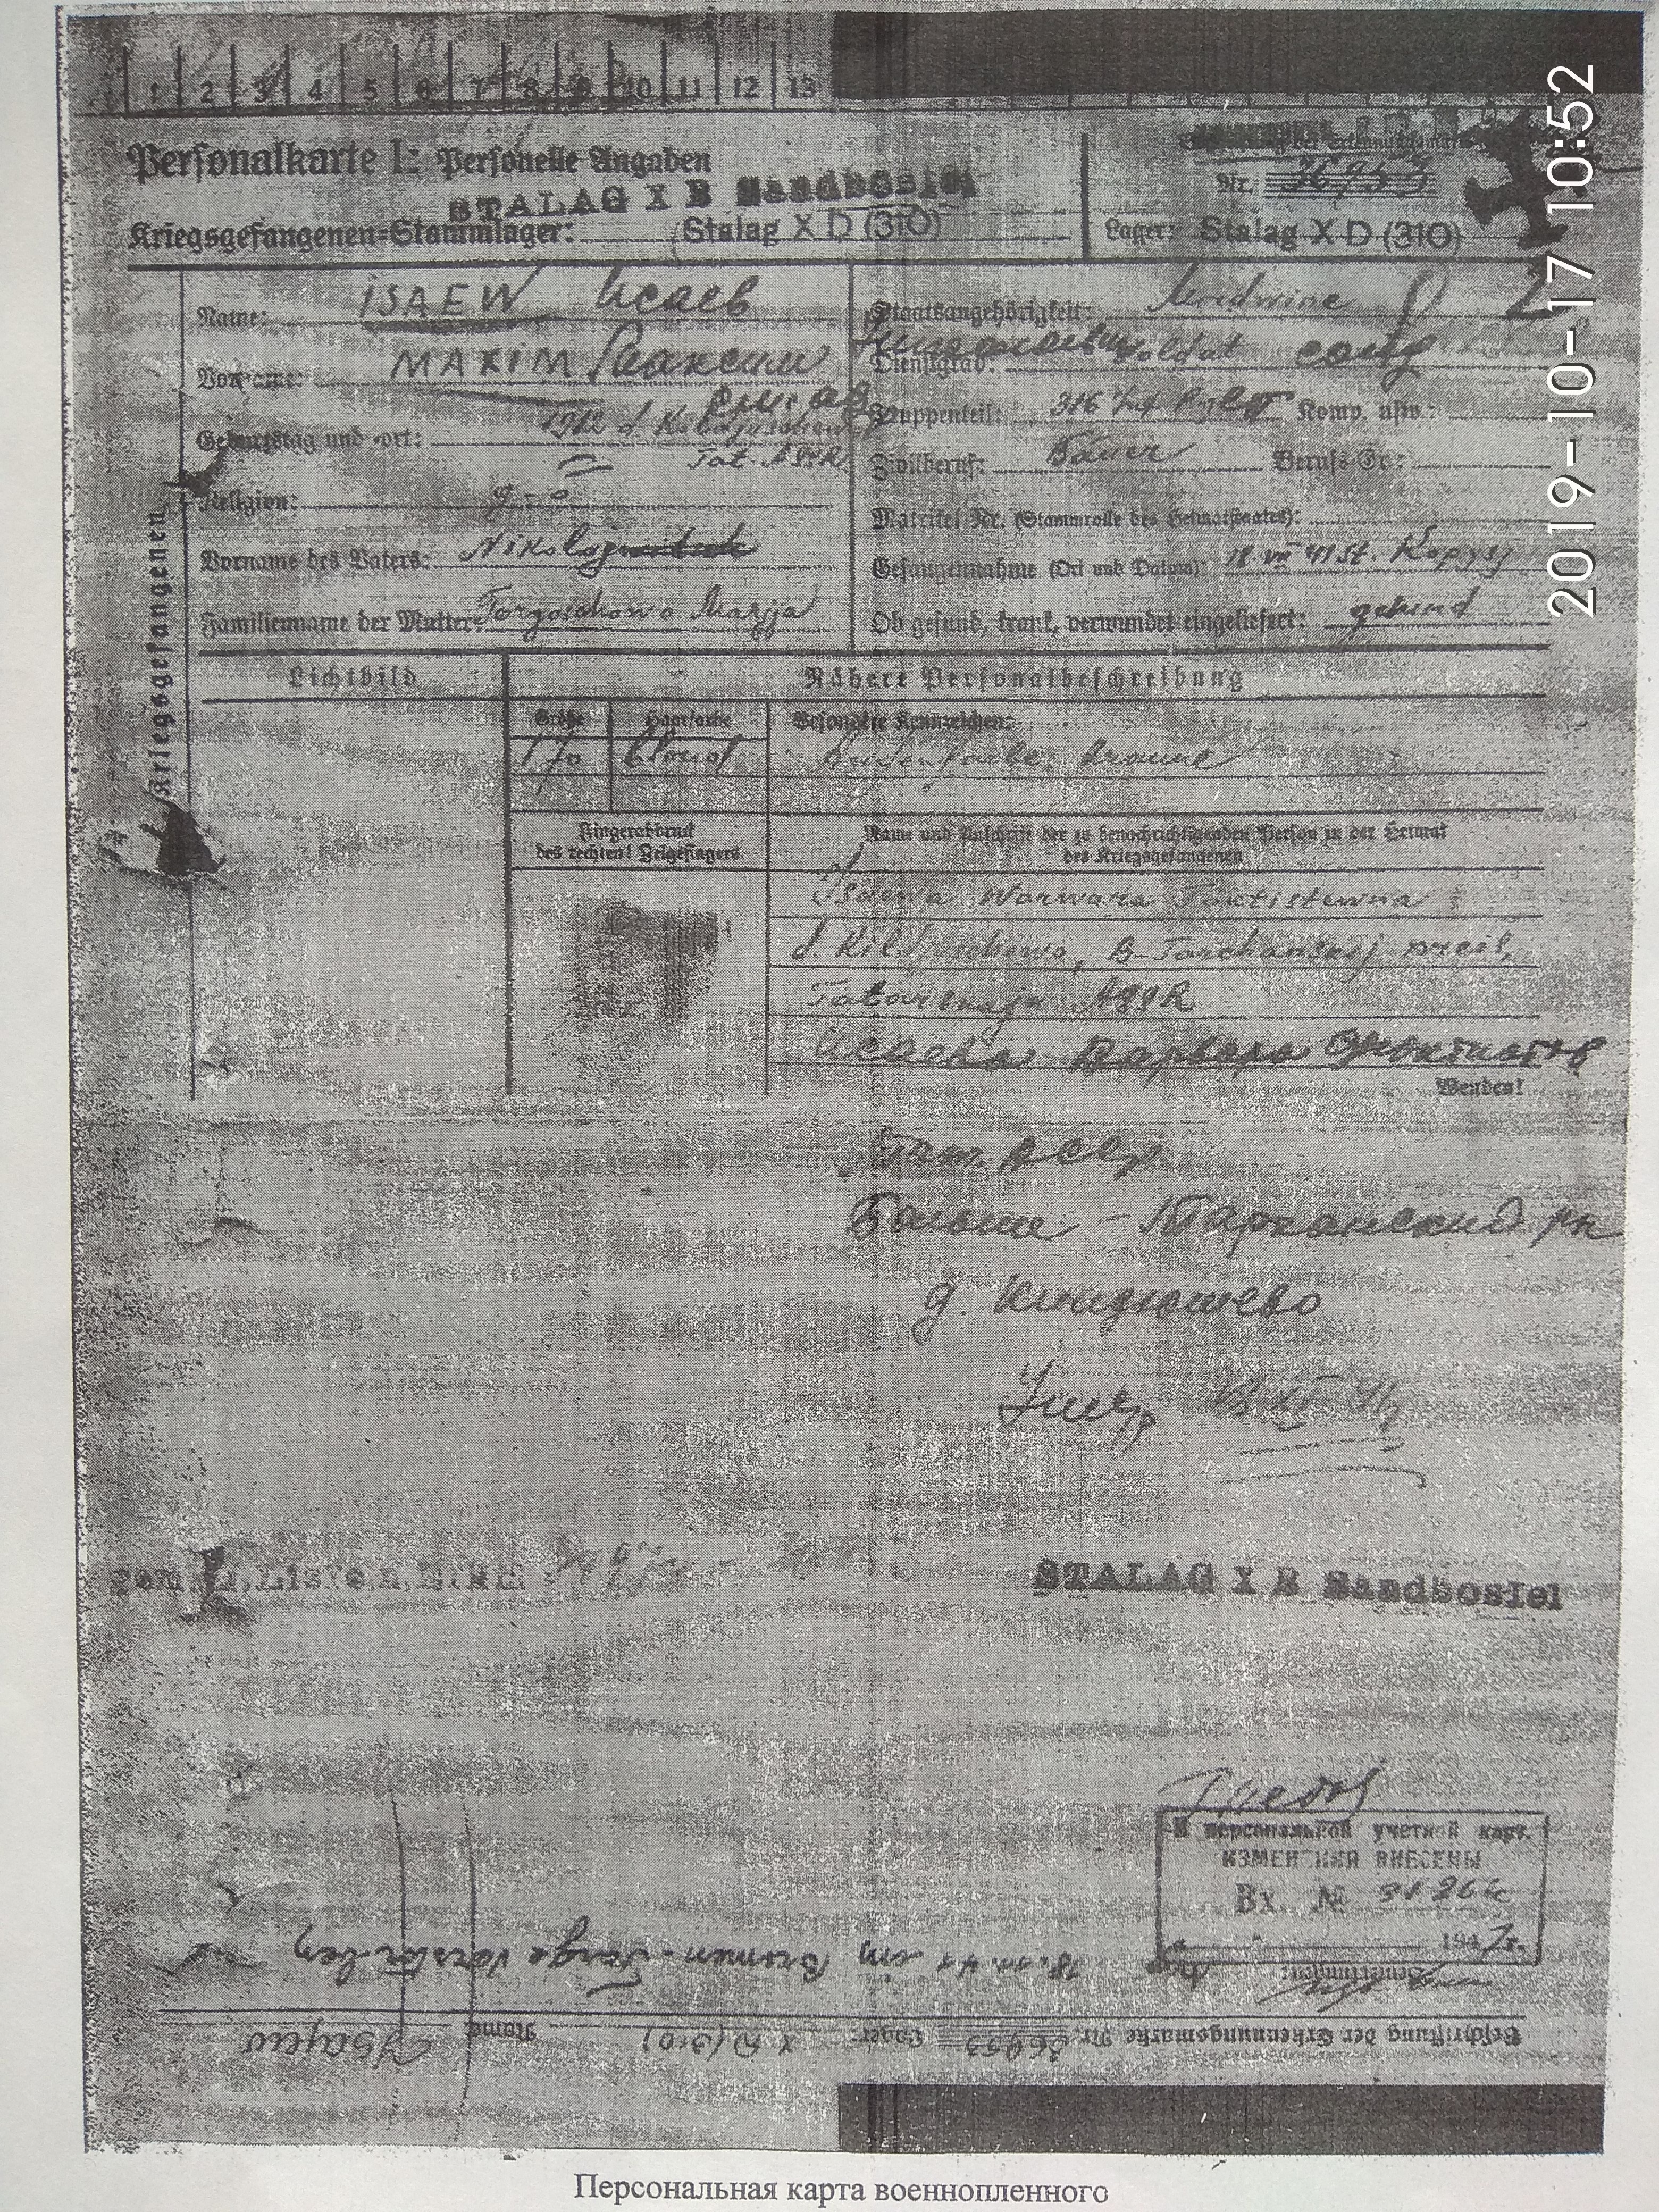 1 2 3 4 5 6 7 8 9 10 11 12 13
Personalkarte I: Personelle Angaben
STALAG X B Sandbostel
Kriegsgefangenen-Stammlager: Stalag X D (310)
Beschriftung der Erkennungsmarke
Nr. 36953
Lager: Stalag X D (310)
Kriegsgefangenen
Name: ISAEW Исаев
Vorname: MAXIM Максим
Geburtstag und -ort: 1912 d.
Tat. ASSR
Religion:
Vorname des Vaters: Nikolaj
Familienname der Mutter: Torgaschowa Marija
Staatsangehörigkeit: Mordwine
Николаевич
Dienstgrad: Soldat солд
Truppenteil: 316 Komp. usw.:
Zivilberuf: Bauer Berufs-Gr.:
Matrikel Nr. (Stammrolle des Heimatstaates):
Gefangennahme (Ort und Datum): 18.VII 41 St. Kopysj
Ob gesund, krank, verwundet eingeliefert: gesund
Lichtbild
Nähere Personalbeschreibung
Größe Haarfarbe Besondere Kennzeichen:
1,70 blond Augenfarbe: braune
Fingerabdruck
des rechten! Zeigefingers
Name und Anschrift der zu benachrichtigenden Person in der Heimat
des Kriegsgefangenen
Isaewa Warwara
d. Kildjuschewo, B-Tarchanskij
ASSR
Исаева Варвара
Wenden!
Тат. АССР
Больше-Тарханский рн
д. Кильдюшево
Умер
STALAG X B Sandbostel
К персональной учетной карт.
ИЗМЕНЕНИЯ ВНЕСЕНЫ
Вх. №
194 7г.
Bemerkungen:
18.11.41 im Bremen-Farge verstorben
Beschriftung der Erkennungsmarke Nr. 36953 Lager: X D (310) Name Isajew
Персональная карта военнопленного
2019-10-17 10:52